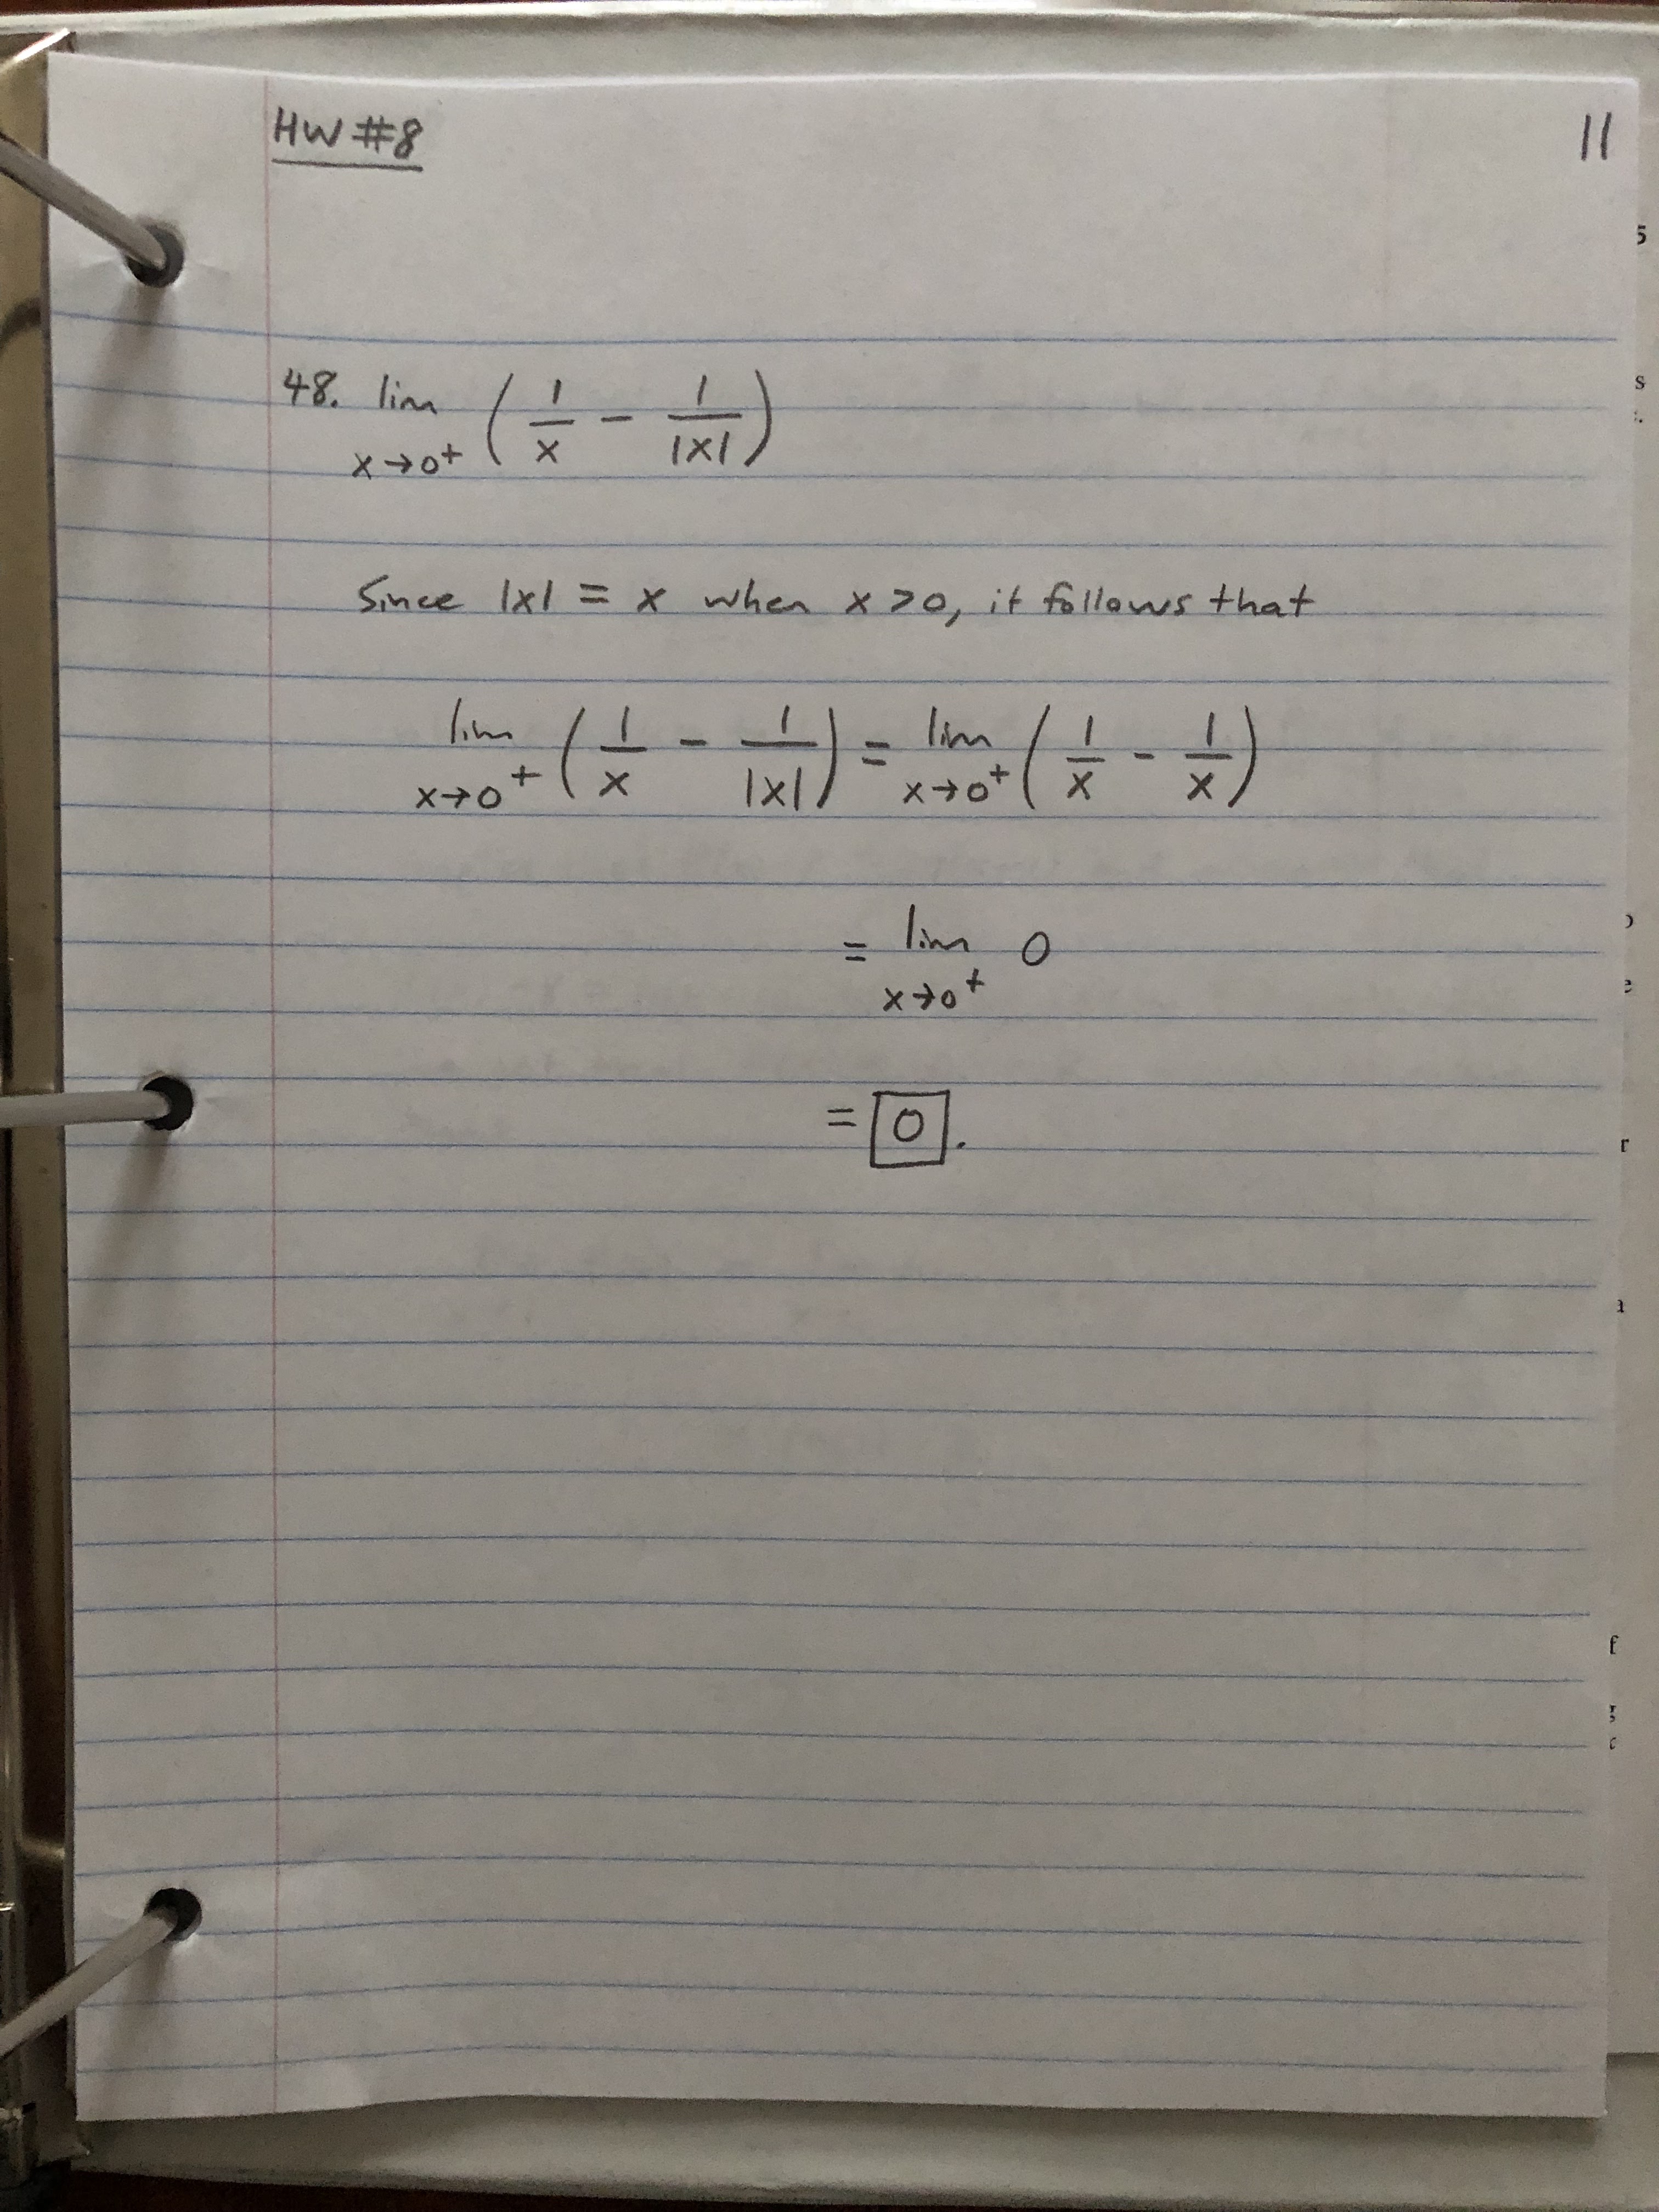 HW #8
11
48. lim x→0+ ( 1/x - 1/|x| )
Since |x| = x when x > 0, it follows that
lim x→0+ ( 1/x - 1/|x| ) = lim x→0+ ( 1/x - 1/x )
= lim x→0+ 0
= 0.